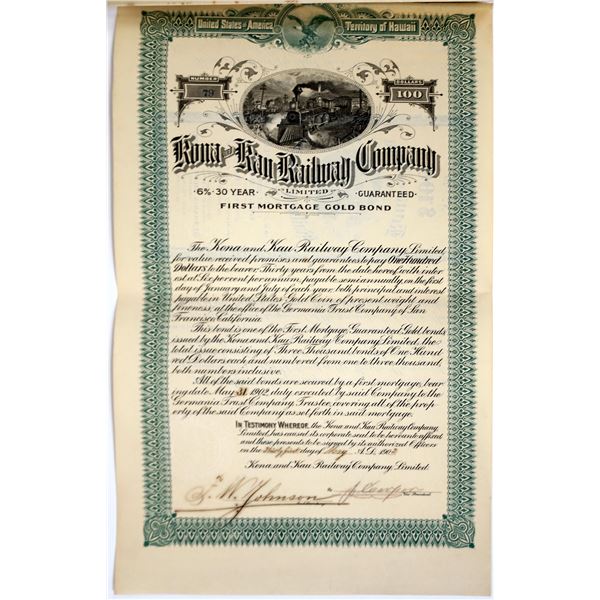 United States of America Territory of Hawaii
NUMBER DOLLARS
79 100
Kona and Kau Railway Company
LIMITED
6% 30 YEAR GUARANTEED
FIRST MORTGAGE GOLD BOND
The Kona and Kau Railway Company, Limited
for value received promises and guarantees to pay One Hundred
Dollars to the bearer Thirty years from the date hereof with inter
est at Six per cent per annum, payable semi annually, on the first
day of January and July of each year, both principal and interest
payable in United States Gold Coin of present weight and
fineness, at the office of the Germania Trust Company of San
Francisco, California.
This bond is one of the First Mortgage Guaranteed Gold bonds
issued by the Kona and Kau Railway Company Limited, the
total issue consisting of Three Thousand bonds of One Hund
red Dollars each and numbered from one to three thousand,
both numbers inclusive.
All of the said bonds are secured by a first mortgage, bear
ing date May 31 1902, duly executed by said Company to the
Germania Trust Company, Trustee, covering all of the prop
erty of the said Company as set forth in said mortgage.
IN TESTIMONY WHEREOF, the Kona and Kau Railway Company
Limited, has caused its corporate seal to be hereunto affixed
and these presents to be signed by its authorized Officers
on the Thirty first day of May A.D. 1902
Kona and Kau Railway Company Limited
F. W. Johnson by
Vice President